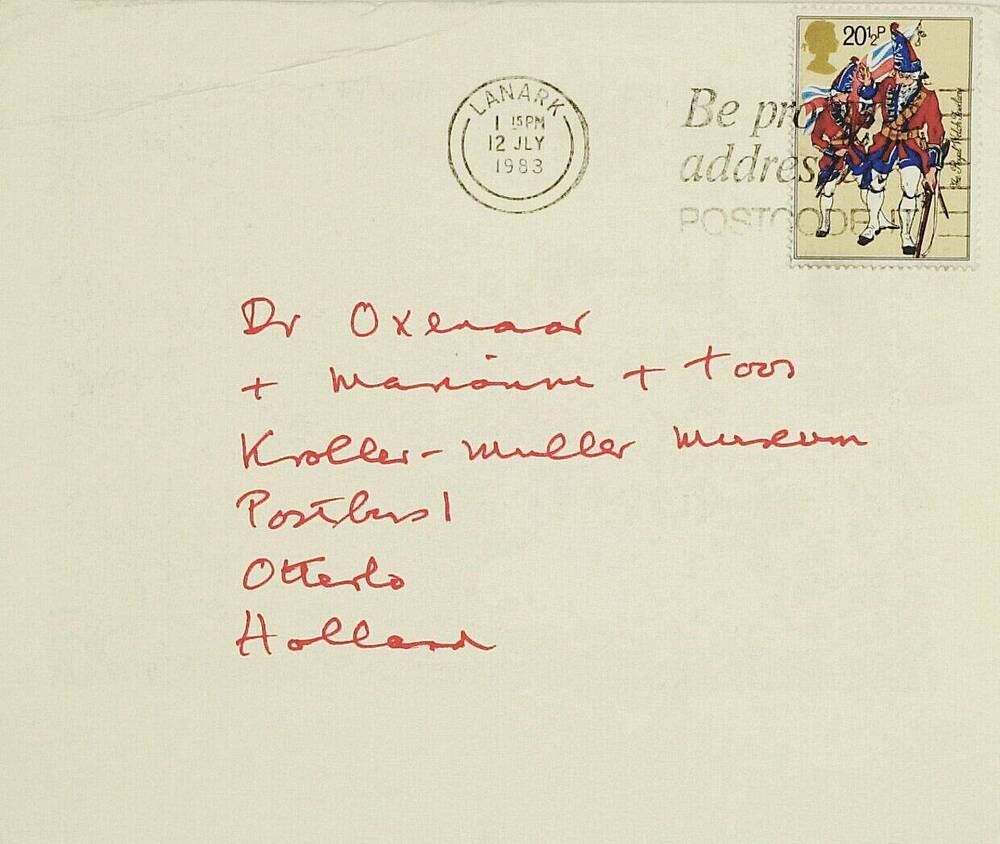 LANARK
1 15 PM
12 JLY
1983
Be pro
addres
POSTCODE IT
20½P
The Royal Welch Fusiliers
Dr Oxenaar
+ Marianne + Toos
Kroller-Muller Museum
Postbus 1
Otterlo
Holland